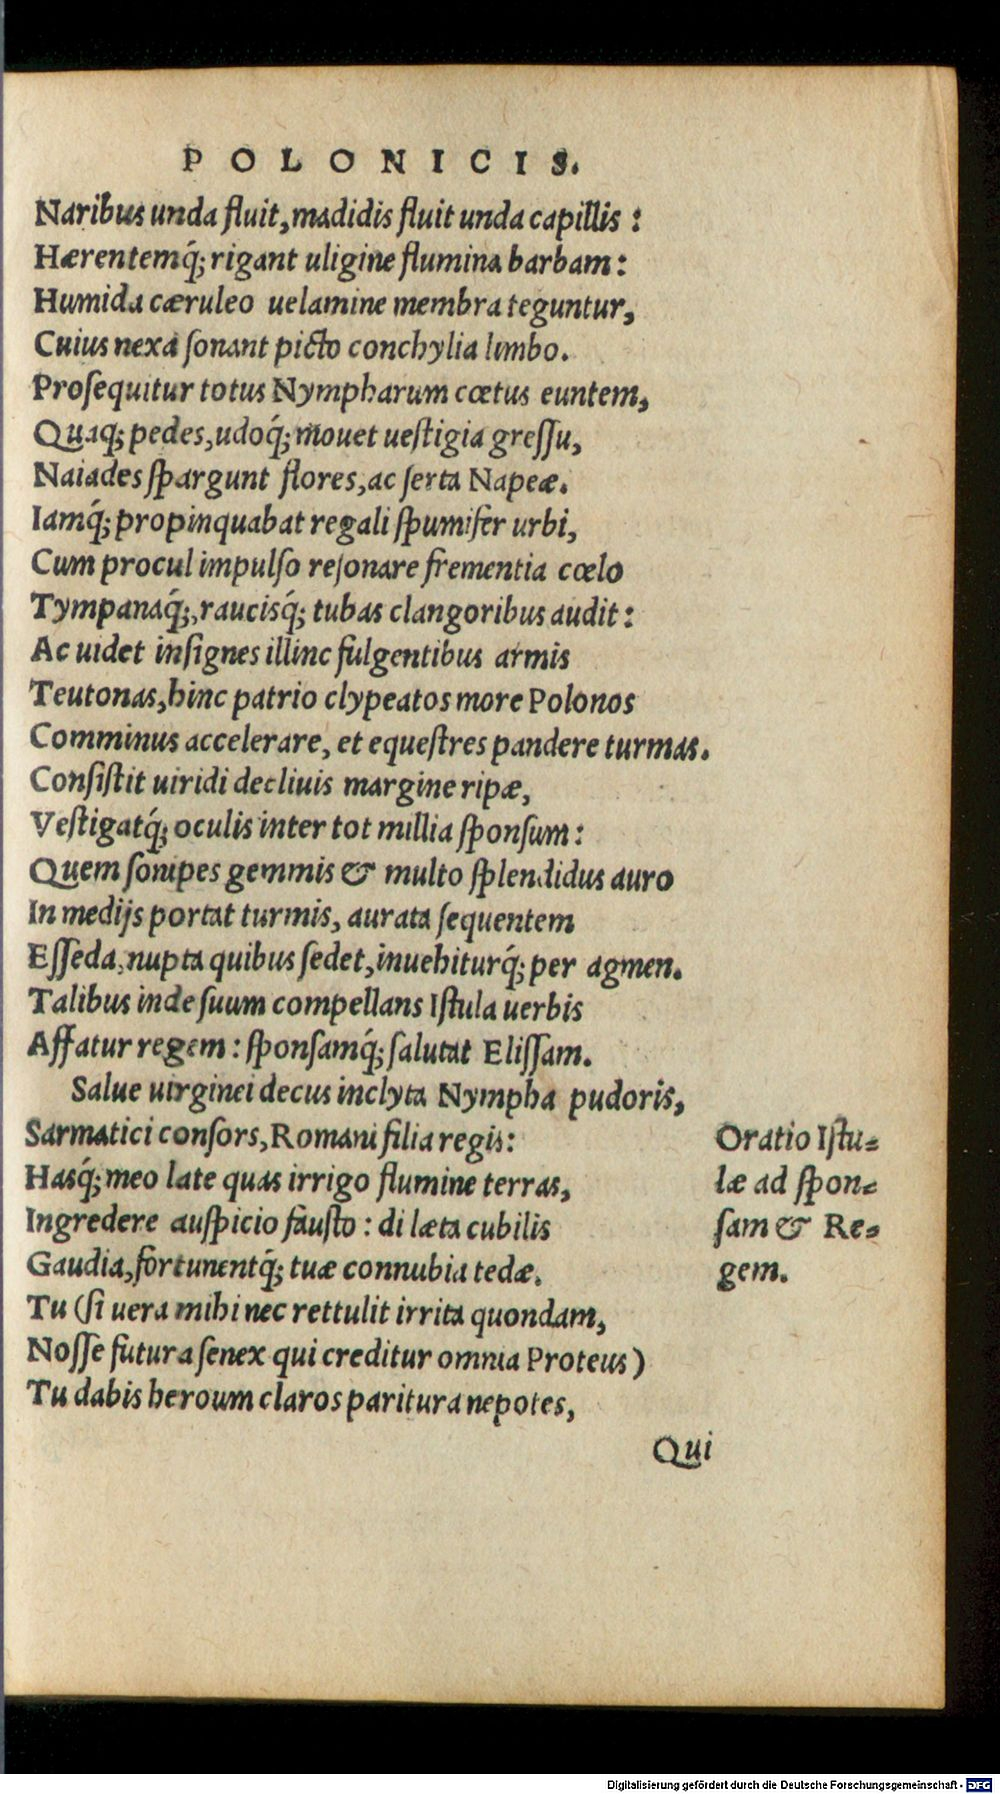 POLONICIS.
Naribus unda fluit, madidis fluit unda capillis:
Hærentemq́; rigant uligine flumina barbam:
Humida cæruleo uelamine membra teguntur,
Cuius nexa ſonant picto conchylia limbo.
Proſequitur totus Nympharum cœtus euntem,
Quaq; pedes, udoq́; mouet ueſtigia greſſu,
Naiades ſpargunt flores, ac ſerta Napeæ.
Iamq́; propinquabat regali ſpumifer urbi,
Cum procul impulſo reſonare frementia cœlo
Tympanaq́;, raucisq́; tubas clangoribus audit:
Ac uidet inſignes illinc fulgentibus armis
Teutonas, hinc patrio clypeatos more Polonos
Comminus accelerare, et equeſtres pandere turmas.
Conſiſtit uiridi decliuis margine ripæ,
Veſtigatq́; oculis inter tot millia ſponſum:
Quem ſonipes gemmis & multo ſplendidus auro
In medijs portat turmis, aurata ſequentem
Eſſeda, nupta quibus ſedet, inuehiturq́; per agmen.
Talibus inde ſuum compellans Iſtula uerbis
Affatur regem: ſponſamq́; ſalutat Eliſſam.
Salue uirginei decus inclyta Nympha pudoris,
Sarmatici conſors, Romani filia regis:
Hasq́; meo late quas irrigo flumine terras,
Ingredere auſpicio fauſto: di læta cubilis
Gaudia, fortunentq́; tuæ connubia tedæ.
Tu (ſi uera mihi nec rettulit irrita quondam,
Noſſe futura ſenex qui creditur omnia Proteus)
Tu dabis heroum claros paritura nepotes,
Qui
Oratio Iſtu-
læ ad ſpon-
ſam & Re-
gem.
Digitalisierung gefördert durch die Deutsche Forschungsgemeinschaft - DFG